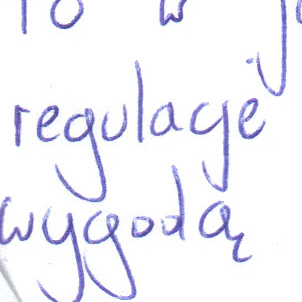 to w
regulacje
wygodą